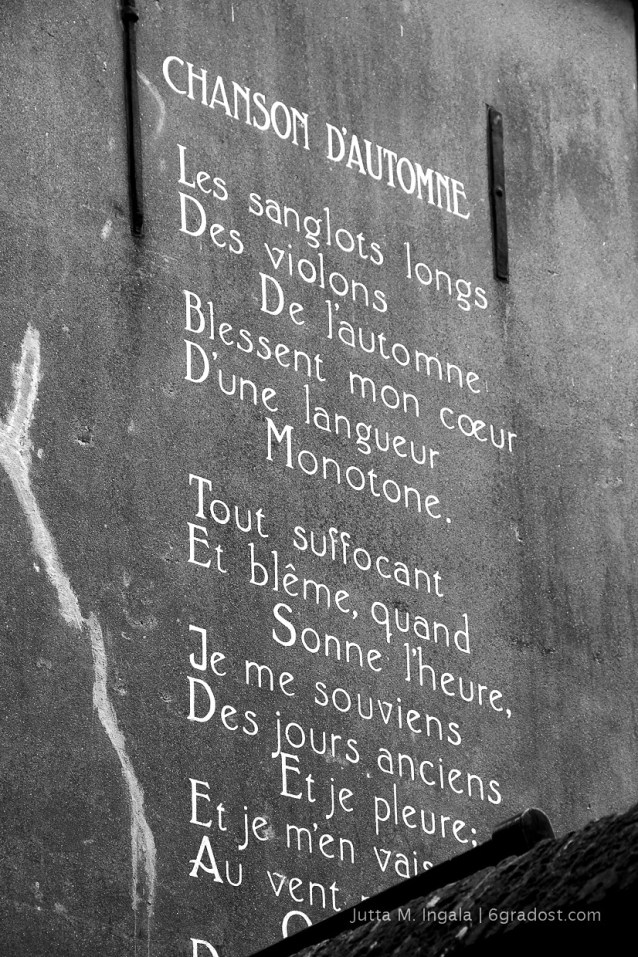 CHANSON D'AUTOMNE
Les sanglots longs
Des violons
De l'automne
Blessent mon cœur
D'une langueur
Monotone.
Tout suffocant
Et blême, quand
Sonne l'heure,
Je me souviens
Des jours anciens
Et je pleure;
Et je m'en vais
Au vent
Jutta M. Ingala | 6gradost.com